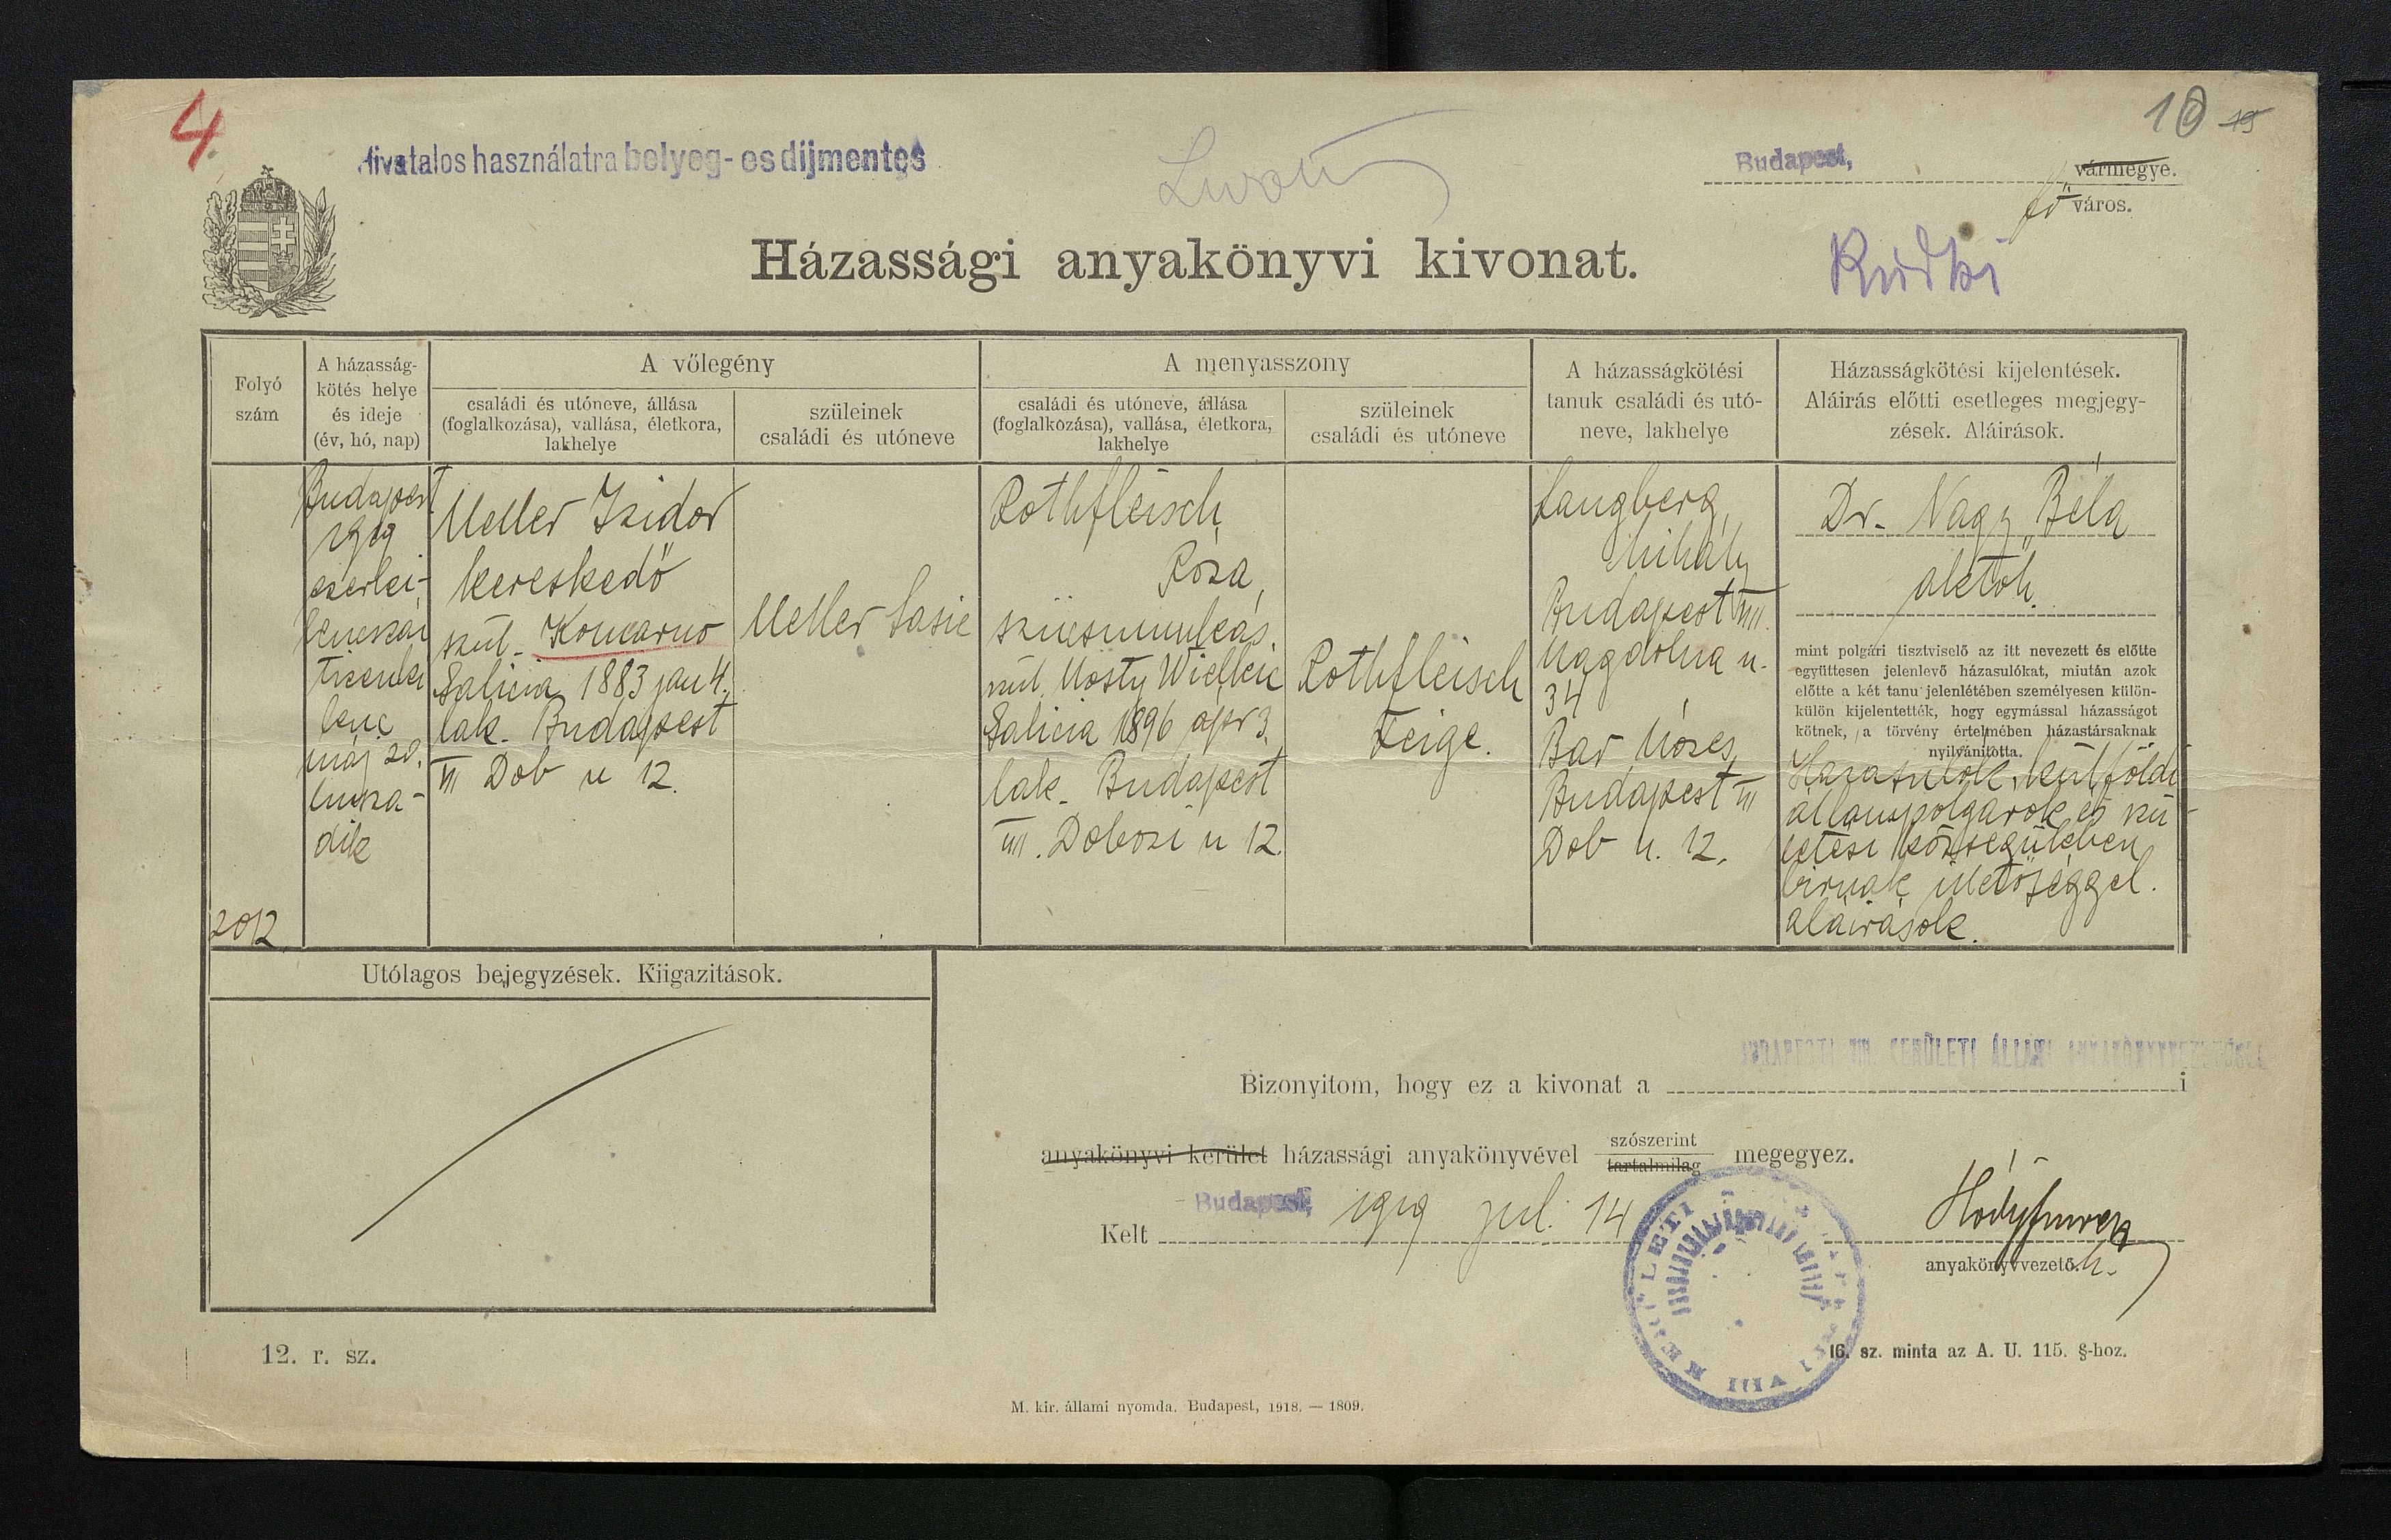 4
10 19
Hivatalos használatra bélyeg- és díjmentes
Lwów
Budapest,
vármegye.
fő város.
Rudki
Házassági anyakönyvi kivonat.
Folyó
szám
A házasság-
kötés helye
és ideje
(év, hó, nap)
A vőlegény
családi és utóneve, állása
(foglalkozása), vallása, életkora,
lakhelye
szüleinek
családi és utóneve
A menyasszony
családi és utóneve, állása
(foglalkozása), vallása, életkora,
lakhelye
szüleinek
családi és utóneve
A házasságkötési
tanuk családi és utó-
neve, lakhelye
Házasságkötési kijelentések.
Aláirás előtti esetleges megjegy-
zések. Aláirások.
2012
Budapest
1919
ezerki-
lencszáz
tizenki
lenc
máj 20.
husza-
dik
Meller Izidor
kereskedő
szül. Komarno
Galicia 1883 jan 4.
lak. Budapest
VII Dob u 12.
Meller Sasie
Rothfleisch
Róza,
szücsmunkás.
szül. Mosty Wielkie
Galicia 1896 apr 3.
lak. Budapest
VIII. Dobozi u 12.
Rothfleisch
Feige.
Langberg
Mihály
Budapest VIII.
Magdolna u.
34
Bar Mózes
Budapest VII
Dob u. 12.
Dr. Nagy Béla
aktőh.
mint polgári tisztviselő az itt nevezett és előtte
együttesen jelenlevő házasulókat, miután azok
előtte a két tanu jelenlétében személyesen külön-
külön kijelentették, hogy egymással házasságot
kötnek, a törvény értelmében házastársaknak
nyilvánitotta.
Házasulók külföldi
állampolgárok és szü-
letési községükben
birnak illetőséggel.
aláirások.
Utólagos bejegyzések. Kiigazitások.
BUDAPESTI VIII. KERÜLETI ÁLLAMI ANYAKÖNYVVEZETŐSÉG
Bizonyitom, hogy ez a kivonat a i
anyakönyvi kerület házassági anyakönyvével szószerint tartalmilag megegyez.
Kelt Budapest, 1919 jul. 14
anyakönyvvezető. h.
VIII KERÜLETI
12. r. sz.
16. sz. minta az A. U. 115. §-hoz.
M. kir. állami nyomda. Budapest, 1918. — 1809.